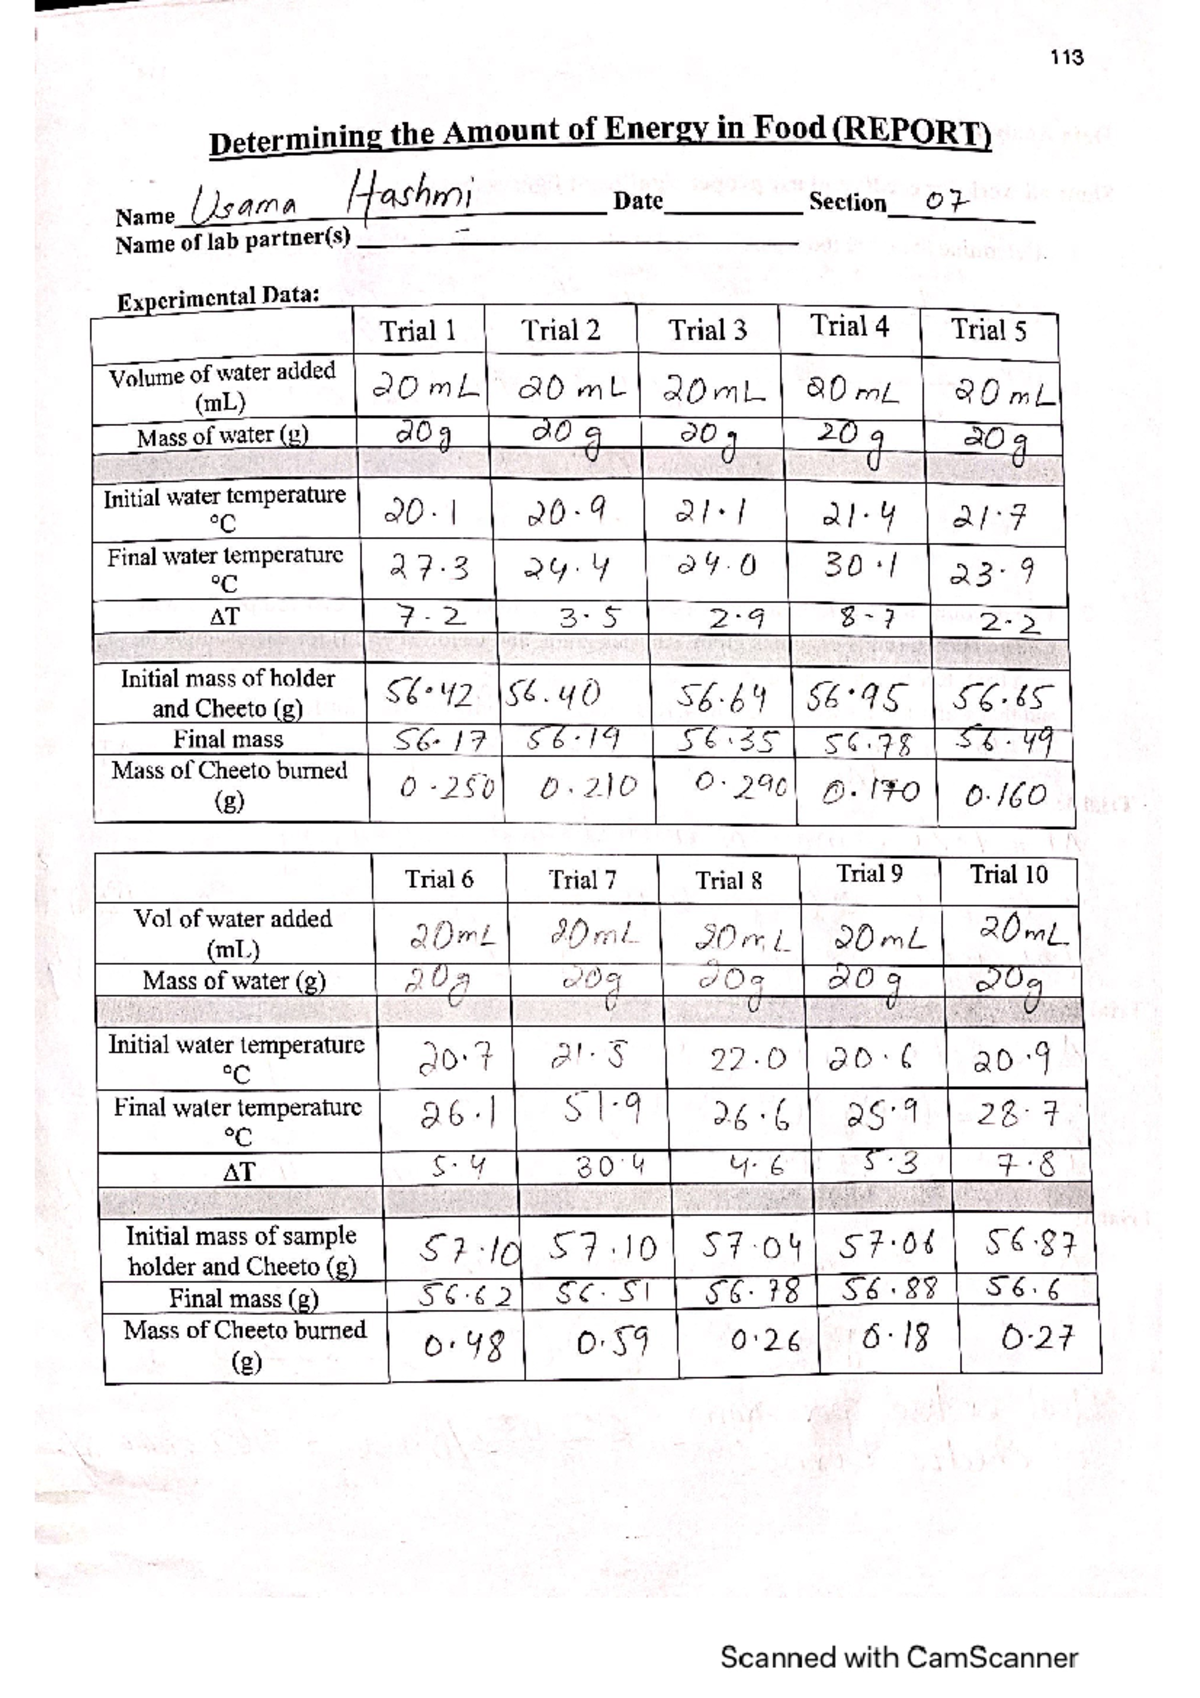 113
Determining the Amount of Energy in Food (REPORT)
Name Usama Hashmi Date Section 07
Name of lab partner(s) -
Experimental Data:
Trial 1 Trial 2 Trial 3 Trial 4 Trial 5
Volume of water added (mL) 20 mL 20 mL 20 mL 20 mL 20 mL
Mass of water (g) 20g 20 g 20 g 20 g 20 g
Initial water temperature °C 20.1 20.9 21.1 21.4 21.7
Final water temperature °C 27.3 24.4 24.0 30.1 23.9
ΔT 7.2 3.5 2.9 8.7 2.2
Initial mass of holder and Cheeto (g) 56.42 56.40 56.64 56.95 56.65
Final mass 56.17 56.19 56.35 56.78 56.49
Mass of Cheeto burned (g) 0.250 0.210 0.290 0.170 0.160
Trial 6 Trial 7 Trial 8 Trial 9 Trial 10
Vol of water added (mL) 20mL 20mL 20mL 20mL 20mL
Mass of water (g) 20g 20g 20g 20g 20g
Initial water temperature °C 20.7 21.5 22.0 20.6 20.9
Final water temperature °C 26.1 51.9 26.6 25.9 28.7
ΔT 5.4 30.4 4.6 5.3 7.8
Initial mass of sample holder and Cheeto (g) 57.10 57.10 57.04 57.06 56.87
Final mass (g) 56.62 56.51 56.78 56.88 56.6
Mass of Cheeto burned (g) 0.48 0.59 0.26 0.18 0.27
Scanned with CamScanner